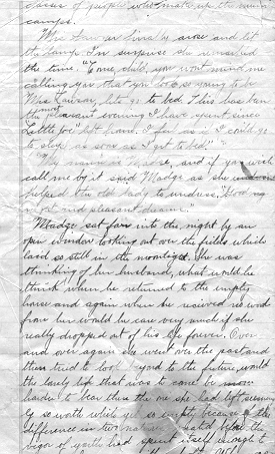 classes of people who make up the mining
camps.
Mrs Lawson finally arose and lit
the lamp. In suspense she remarked
the time. "Come, child, you wont mind me
calling you that you look so young to be
Mrs Lawson, lets go to bed. This has been
the pleasant evening I have spent since
Little Joe left friend. I feel as if I could go
to sleep as soon as I get to bed."
"My name is Madge, and if you wish
call me by it said Madge as she
helped the old lady to undress,
night and pleasant dreams."
Madge sat far into the night by an
open window looking out over the fields which
laid so still in the moonlight. She was
thinking of her husband, what would he
think when he returned to the empty
house and again when he received no word
from her would he care very much if she
really dropped out of his life forever. Over
and over again she went over the past and
then tried to look beyond to the future, would
the lonely life that was to come be more
harder to bear than the one she had left, seeming
so worth while yet so empty because of the
difference in two natures
vigor of youth had spent itself enough to